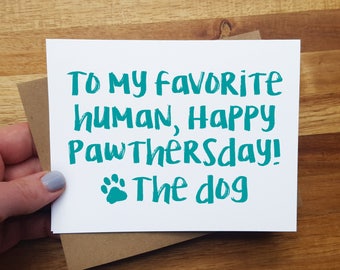 TO MY FAVORITE
HUMAN, HAPPY
PAWTHERSDAY!
THE DOG